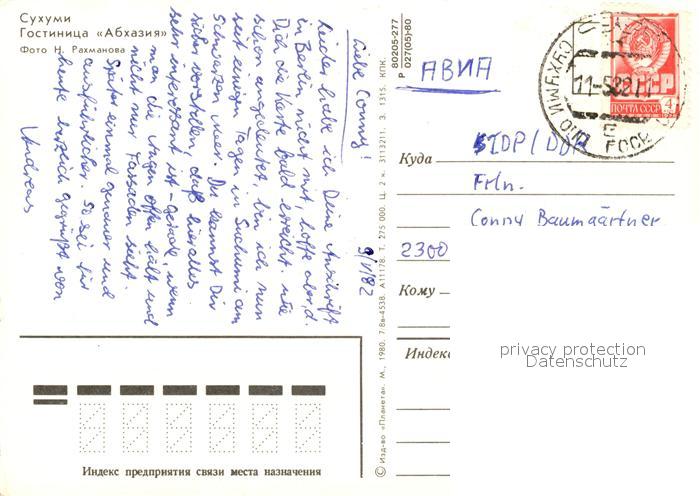 Сухуми
Гостиница «Абхазия»
Фото Н. Рахманова
9/VI/82
Liebe Conny!
Leider habe ich Deine Anschrift
in Berlin nicht mit, hoffe aber, d.
Dich die Karte bald erreicht. Wie
schon angedeutet, bin ich nun
seit einigen Tagen in Suchumi am
Schwarzen Meer. Du kannst Dir
sicher vorstellen, daß hier alles
sehr interessant ist - gerade, wenn
man die Augen offen hält und
nicht nur Fassaden sieht.
Später einmal genauer und
ausführlicher. So sei für
heute herzlich gegrüßt von
Andreas
80205-277
Р 027(05)-80
© Изд-во «Планета». М., 1980. 7.8в-4538. А11178. Т. 275 000. Ц. 2 к. 3113211. З. 1315. КПК.
АВИА
ПОЧТА СССР
4
СУХУМИ
Куда
DDR
Frln.
Conny Baumgärtner
2300
Кому
Индекс
privacy protection
Datenschutz
Индекс предприятия связи места назначения